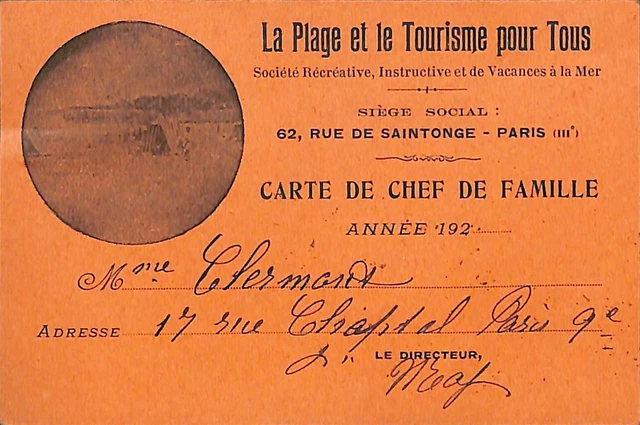 La Plage et le Tourisme pour Tous
Société Récréative, Instructive et de Vacances à la Mer
SIÈGE SOCIAL :
62, RUE DE SAINTONGE - PARIS (IIIᵉ)
CARTE DE CHEF DE FAMILLE
ANNÉE 192
Mme Clermont
ADRESSE 17 rue Chaptal Paris 9e
LE DIRECTEUR,